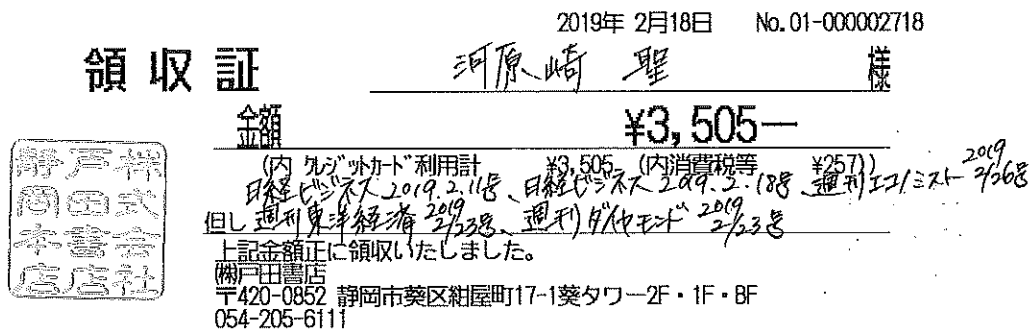 2019年 2月18日 No.01-000002718
領収証 河原崎 聖 様
金額 ¥3,505―
(内 クレジットカード利用計 ¥3,505 (内消費税等 ¥257))
日経ビジネス2019.2.11号、日経ビジネス2019.2.18号、週刊エコノミスト2019 2/26号
但し 週刊東洋経済2019 2/23号、週刊ダイヤモンド2019 2/23号
上記金額正に領収いたしました。
㈱戸田書店
〒420-0852 静岡市葵区紺屋町17-1葵タワー2F・1F・BF
054-205-6111
株式会社
戸田書店
静岡本店